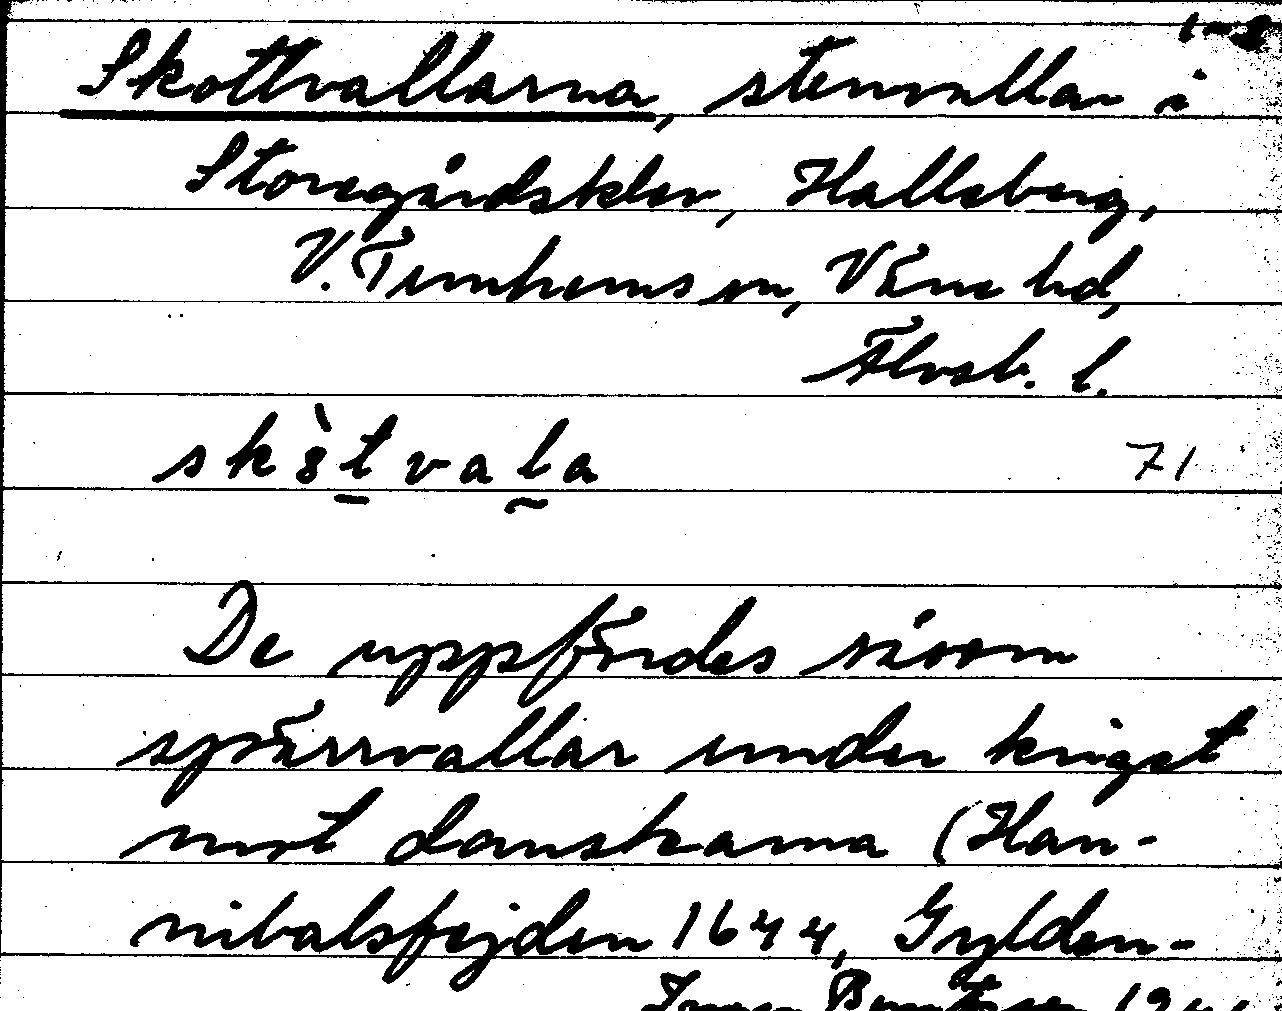 1-2
Skottvallarna, stenvallar i
Storegårdsklev, Halleberg,
V. Tunhems sn, Väne hd,
Älvsb. l.
skòtvala 71
De uppfördes såsom
spärrvallar under kriget
mot danskarna (Han-
nibalsfejden 1644, Gylden-